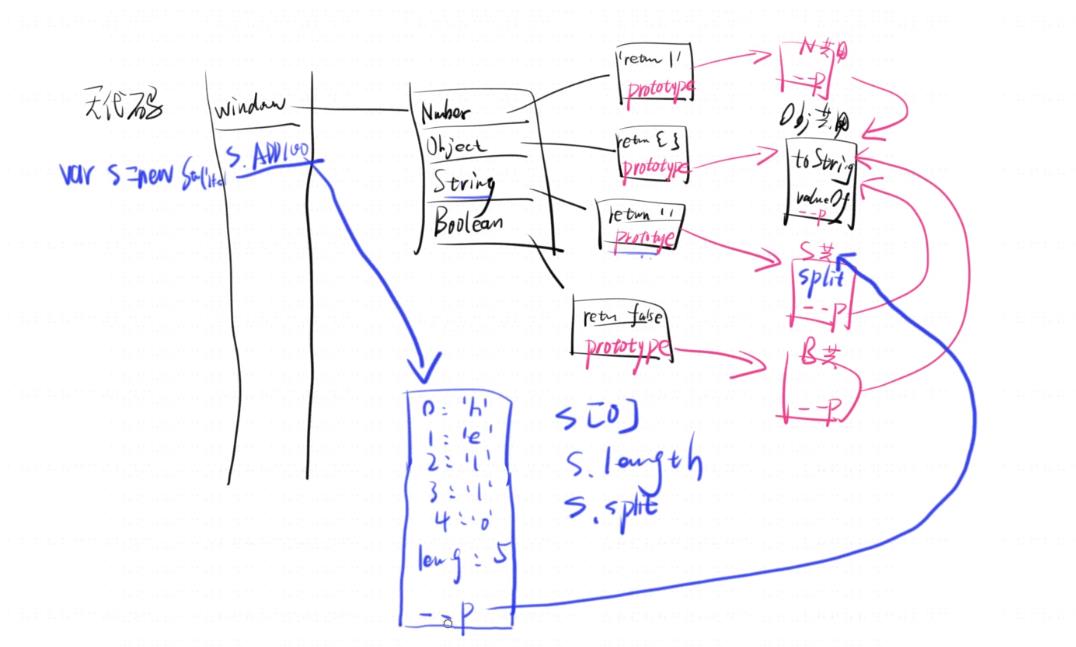 无代码
var s=new
window
S.ADD100
Number
Object
String
Boolean
'return 1'
prototype
return { }
prototype
return ''
prototye
retn false
prototype
N共用
--P
Obj共用
toString
valueOf
--P
S共
split
--P
B共
--P
0: 'h'
1: 'e'
2: 'l'
3: 'l'
4: 'o'
leng: 5
--P
S[0]
S.length
S.split